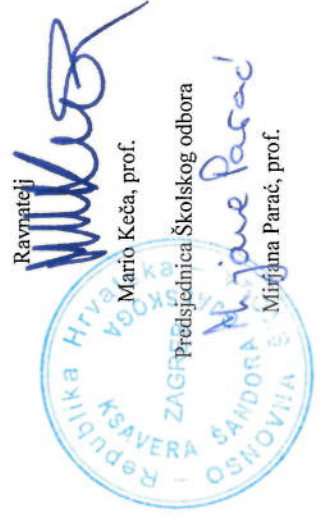 Ravnatelj
Mario Keča, prof.
Predsjednica Školskog odbora
Mirjana Parać
Mirjana Parać, prof.
Republika Hrvatska
OSNOVNA
KSAVERA ŠANDORA
ZAGREB